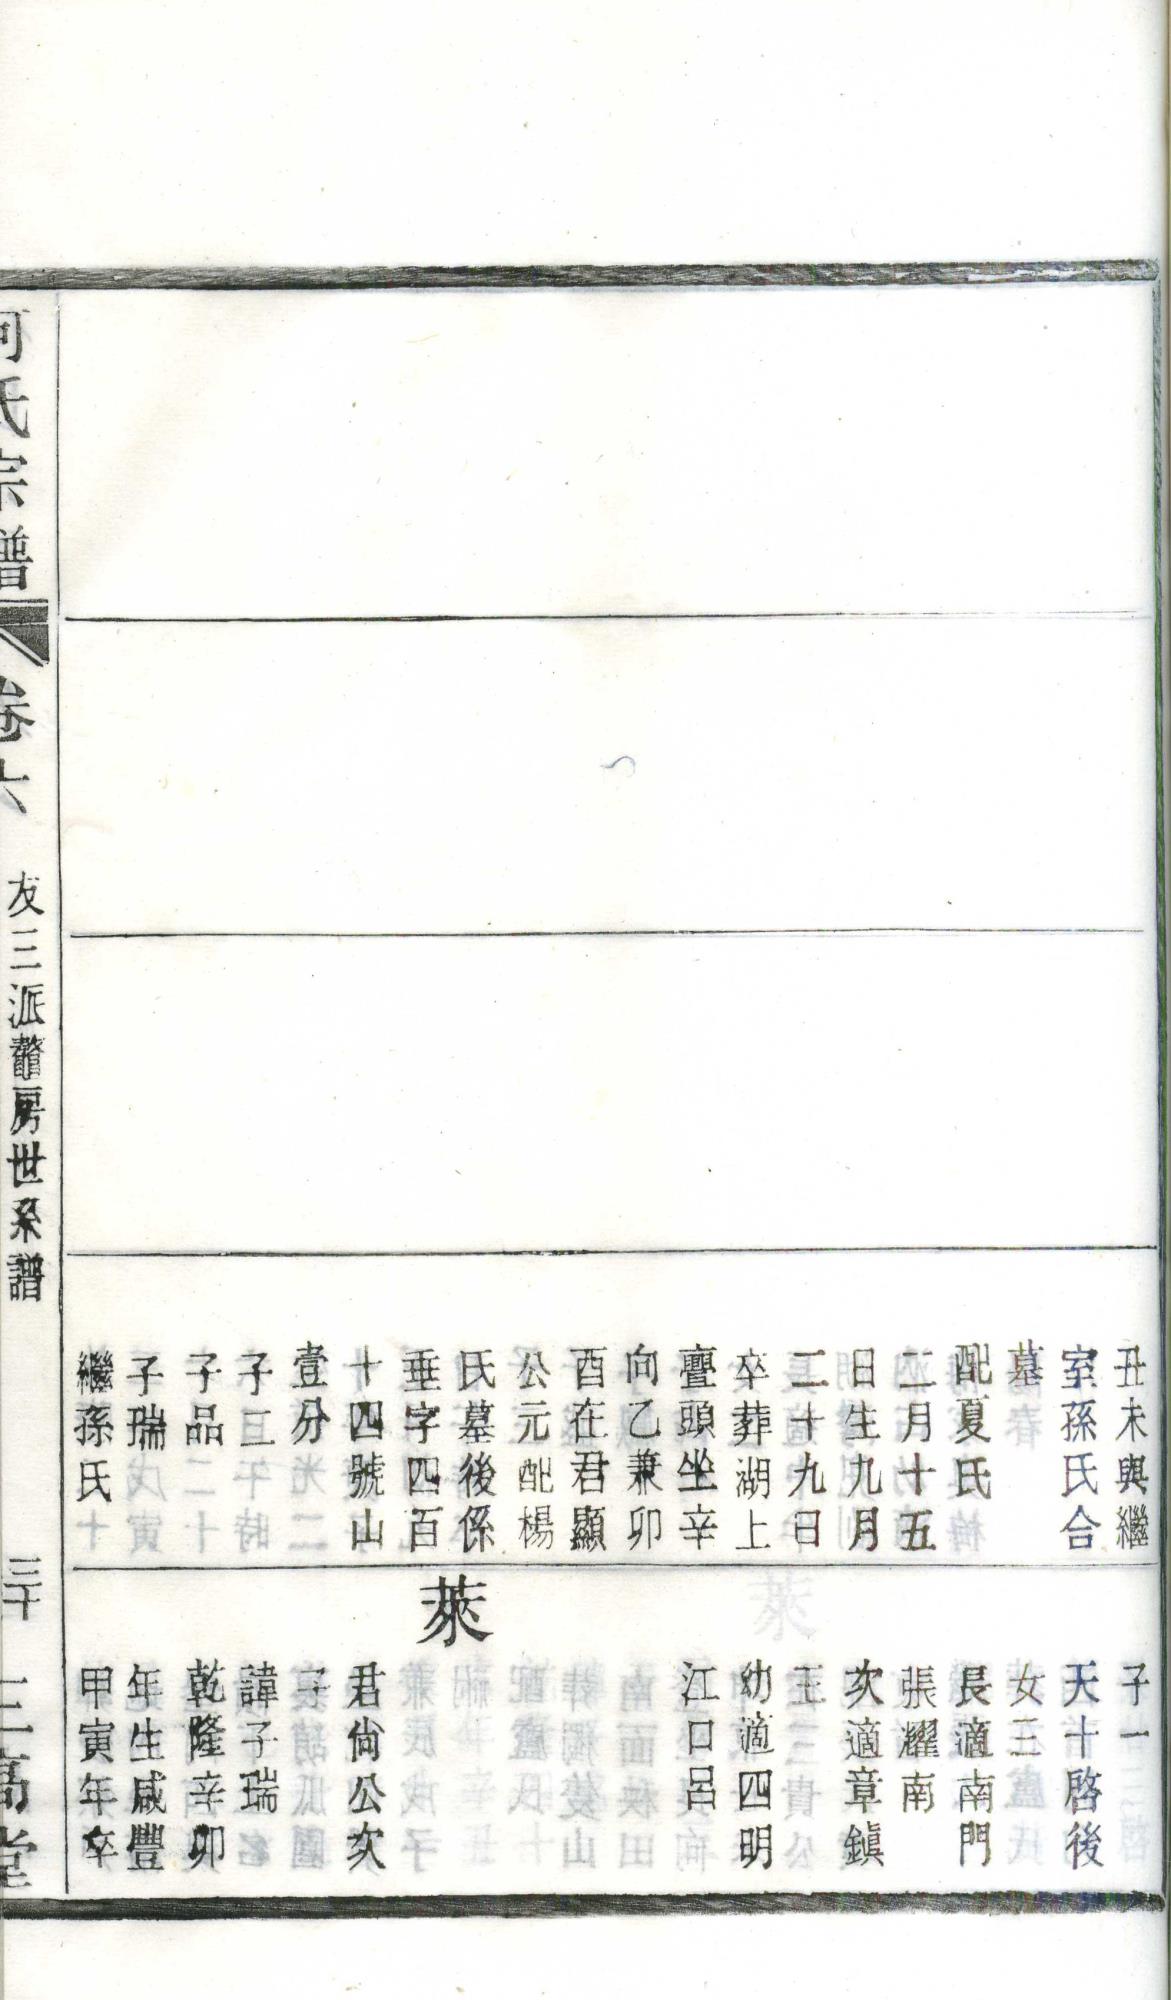 丑未與繼
室孫氏合
墓
配夏氏
二月十五
日生九月
二十九日
卒葬湖上
疊頭坐辛
向乙兼卯
酉在君顯
公元配楊
氏墓後係
垂字四百
十四號山
壹分
子二
子品
子瑞
繼孫氏十
子一
天十啓後
女三
長適南門
張耀南
次適章鎮
王
幼適四明
江口呂
萊
君尙公次
子
諱子瑞
乾隆辛卯
年生咸豐
甲寅年卒
何氏宗譜
卷六
友三派鼇房世系譜
三十
三高堂